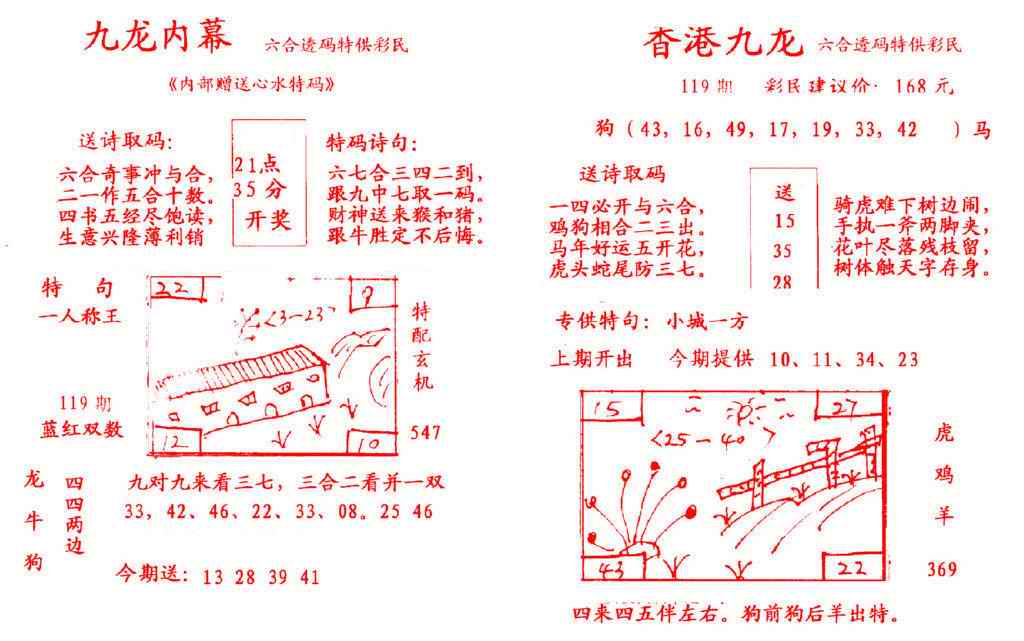 九龙内幕 六合透码特供彩民
《内部赠送心水特码》
送诗取码:
六合奇事冲与合,
二一作五合十数。
四书五经尽饱读,
生意兴隆薄利销
21点
35分
开奖
特码诗句:
六七合三四二到,
跟九中七取一码。
财神送来猴和猪,
跟牛胜定不后悔。
特 句
一人称王
119期
蓝红双数
22
9
<3-23>
12
10
特配玄机
547
龙牛狗
四四两边
九对九来看三七,三合二看并一双
33,42、46、22、33、08。25 46
今期送:13 28 39 41
香港九龙 六合透码特供彩民
119期 彩民建议价· 168元
狗(43,16,49,17,19,33,42 )马
送诗取码
一四必开与六合,
鸡狗相合二三出。
马年好运五开花,
虎头蛇尾防三七。
送
15
35
28
骑虎难下树边闹,
手执一斧两脚夹,
花叶尽落残枝留,
树体触天字存身。
专供特句:小城一方
上期开出 今期提供 10、11、34、23
15
27
<25-40>
43
22
虎鸡羊
369
四来四五伴左右。狗前狗后羊出特。